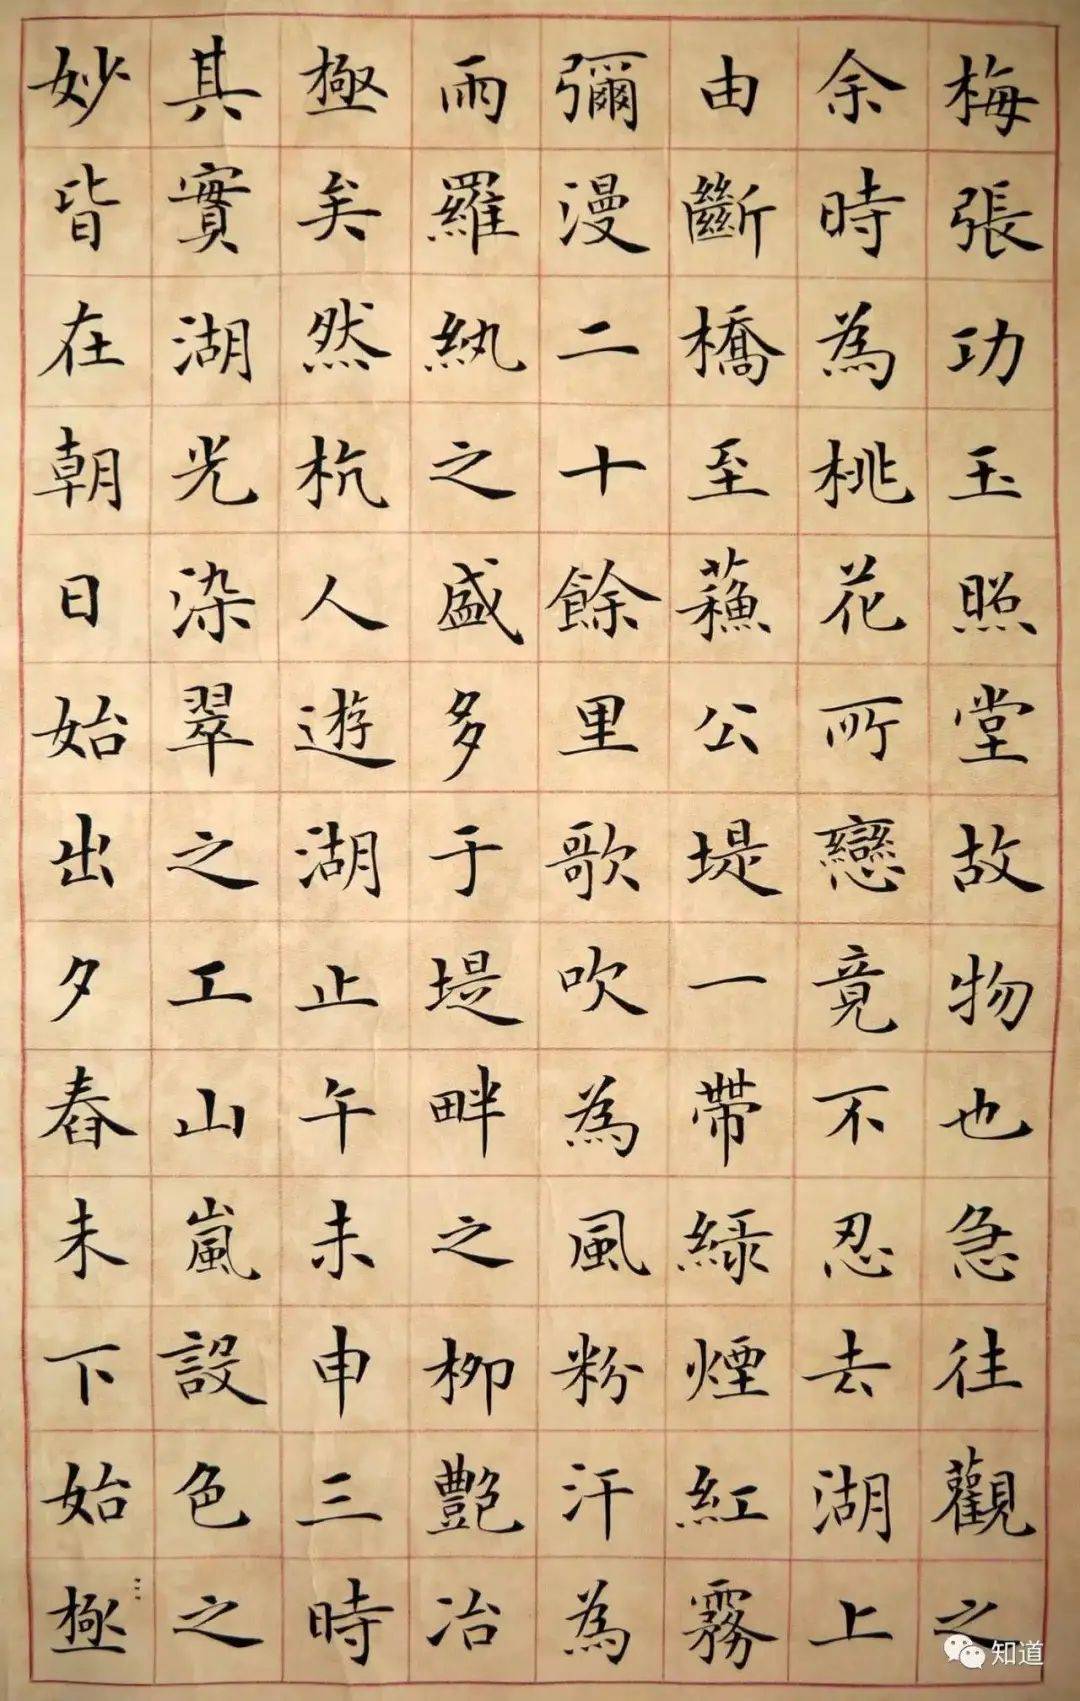 梅張功玉照堂故物也急往觀之
余時為桃花所戀竟不忍去湖上
由斷橋至蘓公堤一帶綠煙紅霧
彌漫二十餘里歌吹為風粉汗為
雨羅紈之盛多于堤畔之柳艷冶
極矣然杭人遊湖止午未申三時
其實湖光染翠之工山嵐設色之
妙皆在朝日始出夕舂未下始極
知道